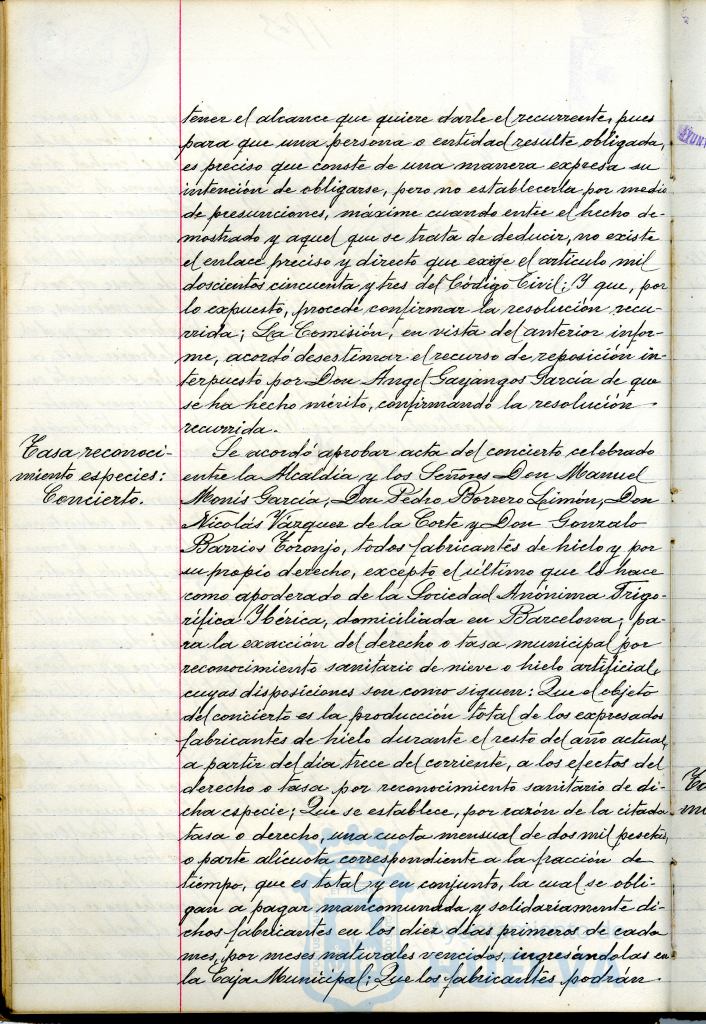 tener el alcance que quiere darle el recurrente, pues
para que una persona o entidad resulte obligada,
es preciso que conste de una manera expresa su
intención de obligarse, pero no establecerla por medio
de presunciones, máxime cuando entre el hecho de-
mostrado y aquel que se trata de deducir, no existe
el enlace preciso y directo que exige el artículo mil
doscientos cincuenta y tres del Código Civil; Y que, por
lo expuesto, procede confirmar la resolución recu-
rrida; La Comisión, en vista del anterior infor-
me, acordó desestimar el recurso de reposición in-
terpuesto por Don Angel Gayangos García de que
se ha hecho mérito, confirmando la resolución
recurrida.
Tasa reconoci-
miento especies:
Concierto.
Se acordó aprobar acta del concierto celebrado
entre la Alcaldía y los Señores Don Manuel
Monis García, Don Pedro Borrero Limón, Don
Nicolás Vázquez de la Corte y Don Gonzalo
Barrios Toronjo, todos fabricantes de hielo y por
su propio derecho, excepto el último que lo hace
como apoderado de la Sociedad Anónima Frigo-
rífica Ibérica, domiciliada en Barcelona, pa-
ra la exacción del derecho o tasa municipal por
reconocimiento sanitario de nieve o hielo artificial,
cuyas disposiciones son como siguen: Que el objeto
del concierto es la producción total de los expresados
fabricantes de hielo durante el resto del año actual,
a partir del día trece del corriente, a los efectos del
derecho o tasa por reconocimiento sanitario de di-
cha especie; Que se establece, por razón de la citada
tasa o derecho, una cuota mensual de dos mil pesetas,
o parte alícuota correspondiente a la fracción de
tiempo, que es total y en conjunto, la cual se obli-
gan a pagar mancomunada y solidariamente di-
chos fabricantes en los diez días primeros de cada
mes, por meses naturales vencidos, ingresándolas en
la Caja Municipal; Que los fabricantes podrán